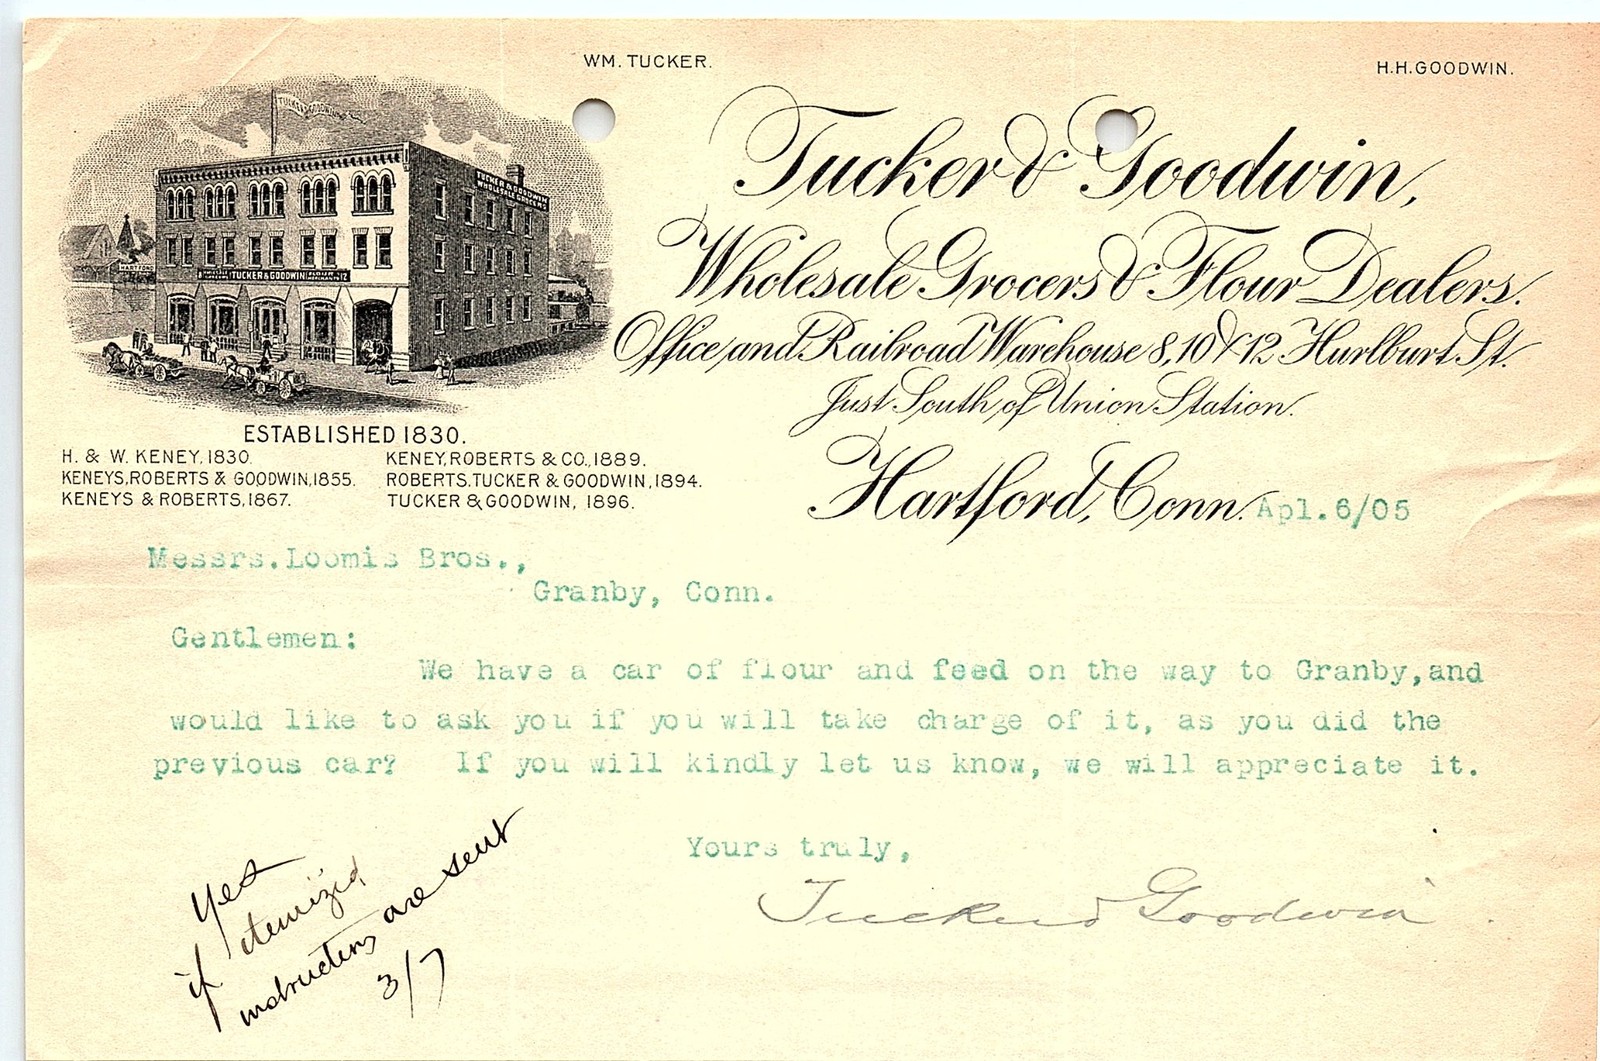 WM. TUCKER.
H.H.GOODWIN.
TUCKER & GOODWIN
TUCKER & GOODWIN
WHOLESALE GROCERS
HARTFORD
TUCKER & GOODWIN
Tucker & Goodwin,
Wholesale Grocers & Flour Dealers.
Office and Railroad Warehouse 8, 10 & 12 Hurlburt St.
Just South of Union Station.
Hartford, Conn. Apl.6/05
ESTABLISHED 1830.
H. & W. KENEY, 1830.
KENEYS, ROBERTS & GOODWIN, 1855.
KENEYS & ROBERTS, 1867.
KENEY, ROBERTS & CO., 1889.
ROBERTS. TUCKER & GOODWIN, 1894.
TUCKER & GOODWIN, 1896.
Messrs.Loomis Bros.,
Granby, Conn.
Gentlemen:
We have a car of flour and feed on the way to Granby,and
would like to ask you if you will take charge of it, as you did the
previous car? If you will kindly let us know, we will appreciate it.
Yours truly,
Tucker & Goodwin
Yes
if itemized
instructions are sent
3/7